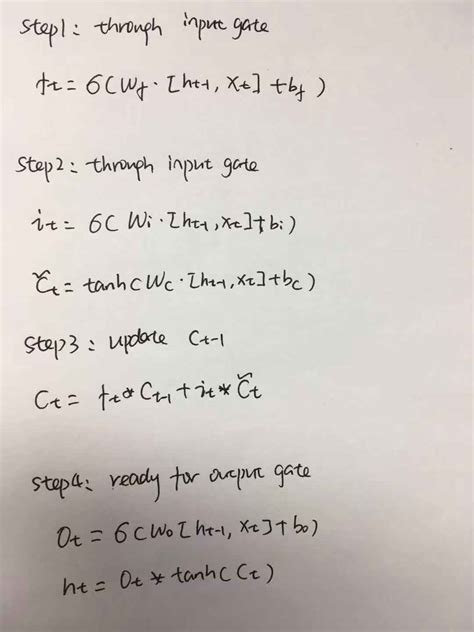 step1: through input gate
ft = σ(Wf · [ht-1, Xt] + bf)
Step2: through input gate
it = σ(Wi · [ht-1, Xt] + bi)
C̃t = tanh(Wc · [ht-1, Xt] + bc)
step3: update Ct-1
Ct = ft * Ct-1 + it * C̃t
step4: ready for output gate
Ot = σ(Wo [ht-1, Xt] + bo)
ht = Ot * tanh(Ct)